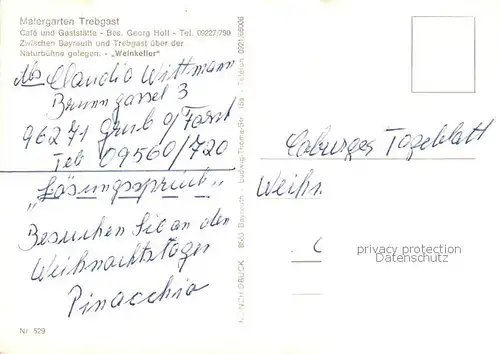 Malergarten Trebgast
Café und Gaststätte - Bes. Georg Holl - Tel. 09227/790
Zwischen Bayreuth und Trebgast über der
Naturbühne gelegen. - „Weinkeller“
Abs Claudia Wittmann
Brunngassel 3
96271 Grub a/Forst
Tel 09560/720
„Lösungsspruch“
Besuchen Sie an den
Weihnachtstagen
Pinacchio
Nr. 529
DRUCK 8580 Bayreuth - Ludwig-Thoma-Str. - Telefon 0921/66006
Coburger Tageblatt
Weihn
privacy protection
Datenschutz